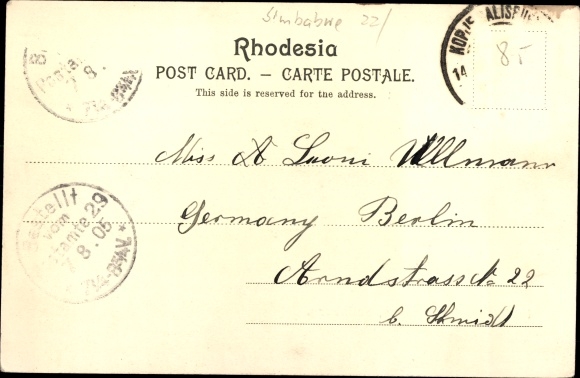 Simbabwe 22/
Rhodesia
POST CARD. – CARTE POSTALE.
This side is reserved for the address.
85
14
Miss A Leoni Ullmann
Germany Berlin
Arndstrasse No 22
b. Schmidt
Bestellt
vom
Postamte 29
8.05